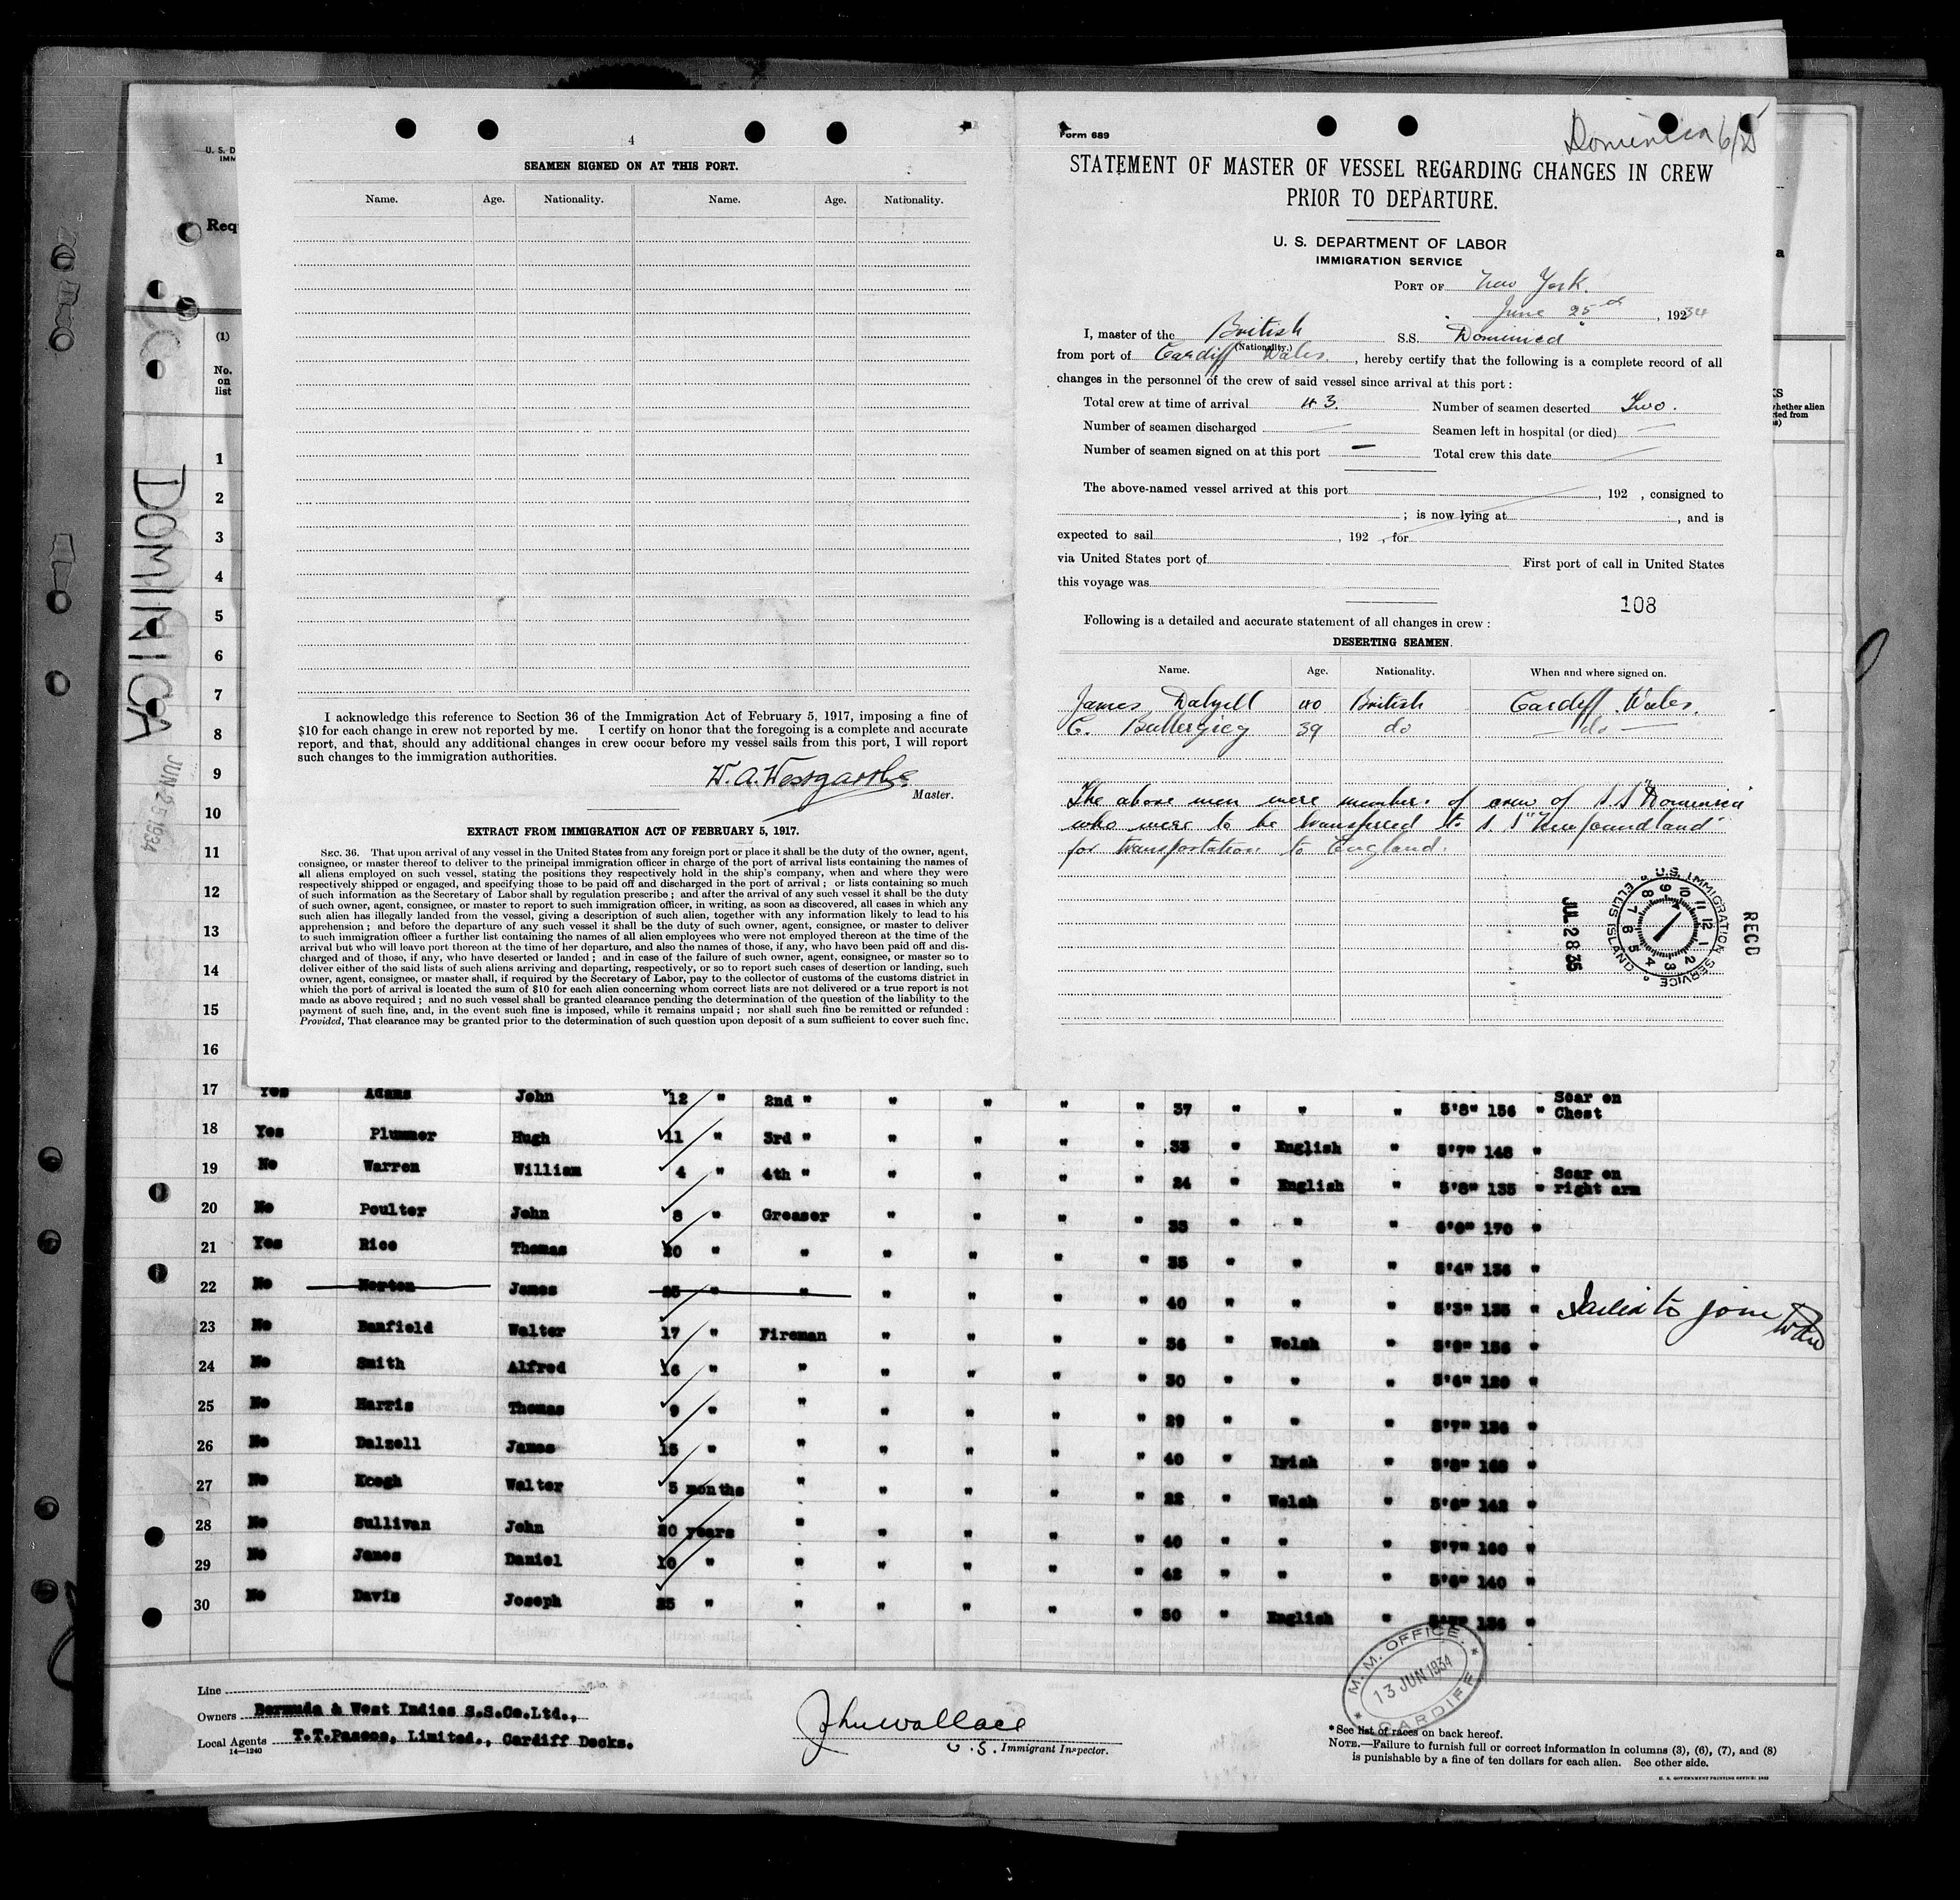 4
SEAMEN SIGNED ON AT THIS PORT.
Name. Age. Nationality. Name. Age. Nationality.
I acknowledge this reference to Section 36 of the Immigration Act of February 5, 1917, imposing a fine of
$10 for each change in crew not reported by me. I certify on honor that the foregoing is a complete and accurate
report, and that, should any additional changes in crew occur before my vessel sails from this port, I will report
such changes to the immigration authorities.
W. A. Westgarth
Master.
EXTRACT FROM IMMIGRATION ACT OF FEBRUARY 5, 1917.
SEC. 36. That upon arrival of any vessel in the United States from any foreign port or place it shall be the duty of the owner, agent,
consignee, or master thereof to deliver to the principal immigration officer in charge of the port of arrival lists containing the names of
all aliens employed on such vessel, stating the positions they respectively hold in the ship's company, when and where they were
respectively shipped or engaged, and specifying those to be paid off and discharged in the port of arrival; or lists containing so much
of such information as the Secretary of Labor shall by regulation prescribe; and after the arrival of any such vessel it shall be the duty
of such owner, agent, consignee, or master to report to such immigration officer, in writing, as soon as discovered, all cases in which any
such alien has illegally landed from the vessel, giving a description of such alien, together with any information likely to lead to his
apprehension; and before the departure of any such vessel it shall be the duty of such owner, agent, consignee, or master to deliver
to such immigration officer a further list containing the names of all alien employees who were not employed thereon at the time of the
arrival but who will leave port thereon at the time of her departure, and also the names of those, if any, who have been paid off and dis-
charged and of those, if any, who have deserted or landed; and in case of the failure of such owner, agent, consignee, or master so to
deliver either of the said lists of such aliens arriving and departing, respectively, or so to report such cases of desertion or landing, such
owner, agent, consignee, or master shall, if required by the Secretary of Labor, pay to the collector of customs of the customs district in
which the port of arrival is located the sum of $10 for each alien concerning whom correct lists are not delivered or a true report is not
made as above required; and no such vessel shall be granted clearance pending the determination of the question of the liability to the
payment of such fine, and, in the event such fine is imposed, while it remains unpaid; nor shall such fine be remitted or refunded:
Provided, That clearance may be granted prior to the determination of such question upon deposit of a sum sufficient to cover such fine.
Form 689
Dominica
STATEMENT OF MASTER OF VESSEL REGARDING CHANGES IN CREW
PRIOR TO DEPARTURE.
U. S. DEPARTMENT OF LABOR
IMMIGRATION SERVICE
PORT OF New York.
June 25, 1934
I, master of the British S.S. "Dominica"
(Nationality.)
from port of Cardiff Wales., hereby certify that the following is a complete record of all
changes in the personnel of the crew of said vessel since arrival at this port:
Total crew at time of arrival 43. Number of seamen deserted Two.
Number of seamen discharged — Seamen left in hospital (or died) —
Number of seamen signed on at this port — Total crew this date —
The above-named vessel arrived at this port , 192 , consigned to
; is now lying at , and is
expected to sail , 192 , for
via United States port of First port of call in United States
this voyage was
108
Following is a detailed and accurate statement of all changes in crew:
DESERTING SEAMEN.
Name. Age. Nationality. When and where signed on.
James Dalzell 40 British Cardiff Wales.
C. 39 do — do —
The above men were members of crew of S.S "Dominica"
who were to be transferred to S.S "Newfoundland"
for transportation to England.
U.S. IMMIGRATION SERVICE ELLIS ISLAND
RECD
JUL 28 35
DOMINICA
JUN 25 1934
U. S. D
IMM
Req
(1)
No.
on
list
1
2
3
4
5
6
7
8
9
10
11
12
13
14
15
16
17 Yes Adams John 12 " 2nd " " " " " 37 " " " 5'8" 156 " Scar on Chest
18 Yes Plummer Hugh 11 " 3rd " " " " " 33 " English " 5'7" 148 "
19 No Warren William 4 " 4th " " " " " 24 " English " 5'8" 135 " Scar on right arm
20 No Poulter John 8 " Greaser " " " " 33 " " " 6'0" 170 "
21 Yes Rice Thomas 20 " " " " " " 35 " " " 5'4" 136 "
22 No Norton James 25 " " " " " " 40 " " " 5'3" 135 " Failed to join
23 No Banfield Walter 17 " Fireman " " " " 36 " Welsh " 5'9" 156 "
24 No Smith Alfred 16 " " " " " " 30 " " " 5'6" 120 "
25 No Harris Thomas 9 " " " " " " 29 " " " 5'7" 136 "
26 No Dalzell James 15 " " " " " " 40 " Irish " 5'8" 160 "
27 No Keogh Walter 5 months " " " " " 22 " Welsh " 5'6" 142 "
28 No Sullivan John 20 years " " " " " 40 " " " 5'7" 160 "
29 No James Daniel 10 " " " " " " 42 " " " 5'6" 140 "
30 No Davis Joseph 25 " " " " " " 50 " English " 156 "
Line
Owners Bermuda & West Indies S.S.Co.Ltd.,
Local Agents T.T.Pascoe, Limited., Cardiff Docks.
14—1240
Jhn Wallace
U. S. Immigrant Inspector.
M. M. OFFICE.
13 JUN 1934
CARDIFF
*See list of races on back hereof.
NOTE.—Failure to furnish full or correct information in columns (3), (6), (7), and (8)
is punishable by a fine of ten dollars for each alien. See other side.
U. S. GOVERNMENT PRINTING OFFICE: